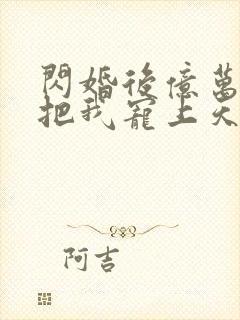 閃婚後億萬
把我寵上天
阿吉